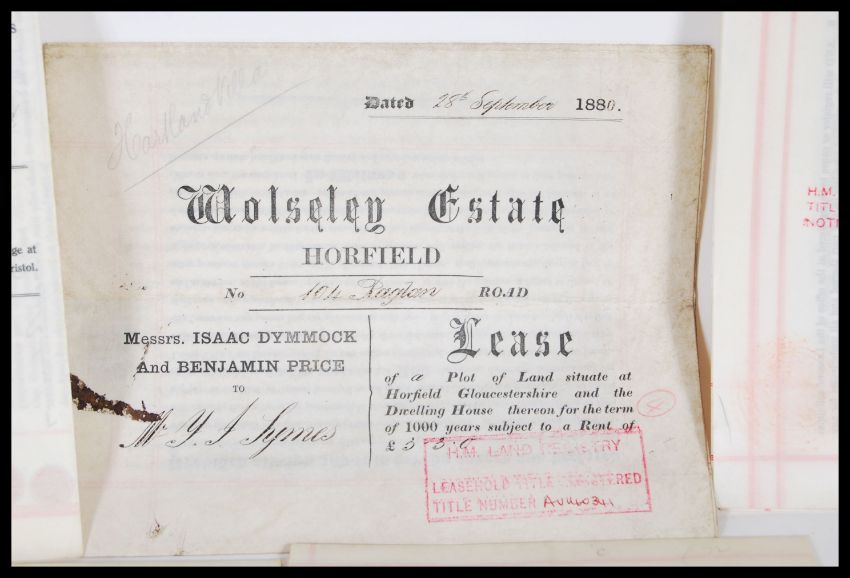 Hartland Villa
Dated 28th September 1880.
Wolseley Estate
HORFIELD
No 104 Raglan ROAD
Messrs. ISAAC DYMMOCK
And BENJAMIN PRICE
TO
Mr Y J Symes
Lease
of a Plot of Land situate at
Horfield Gloucestershire and the
Dwelling House thereon for the term
of 1000 years subject to a Rent of
£ 3 3.
4
H.M. LAND REGISTRY
LEASEHOLD TITLE REGISTERED
TITLE NUMBER
ge at
ristol.
H.M.
TITL
NOTI